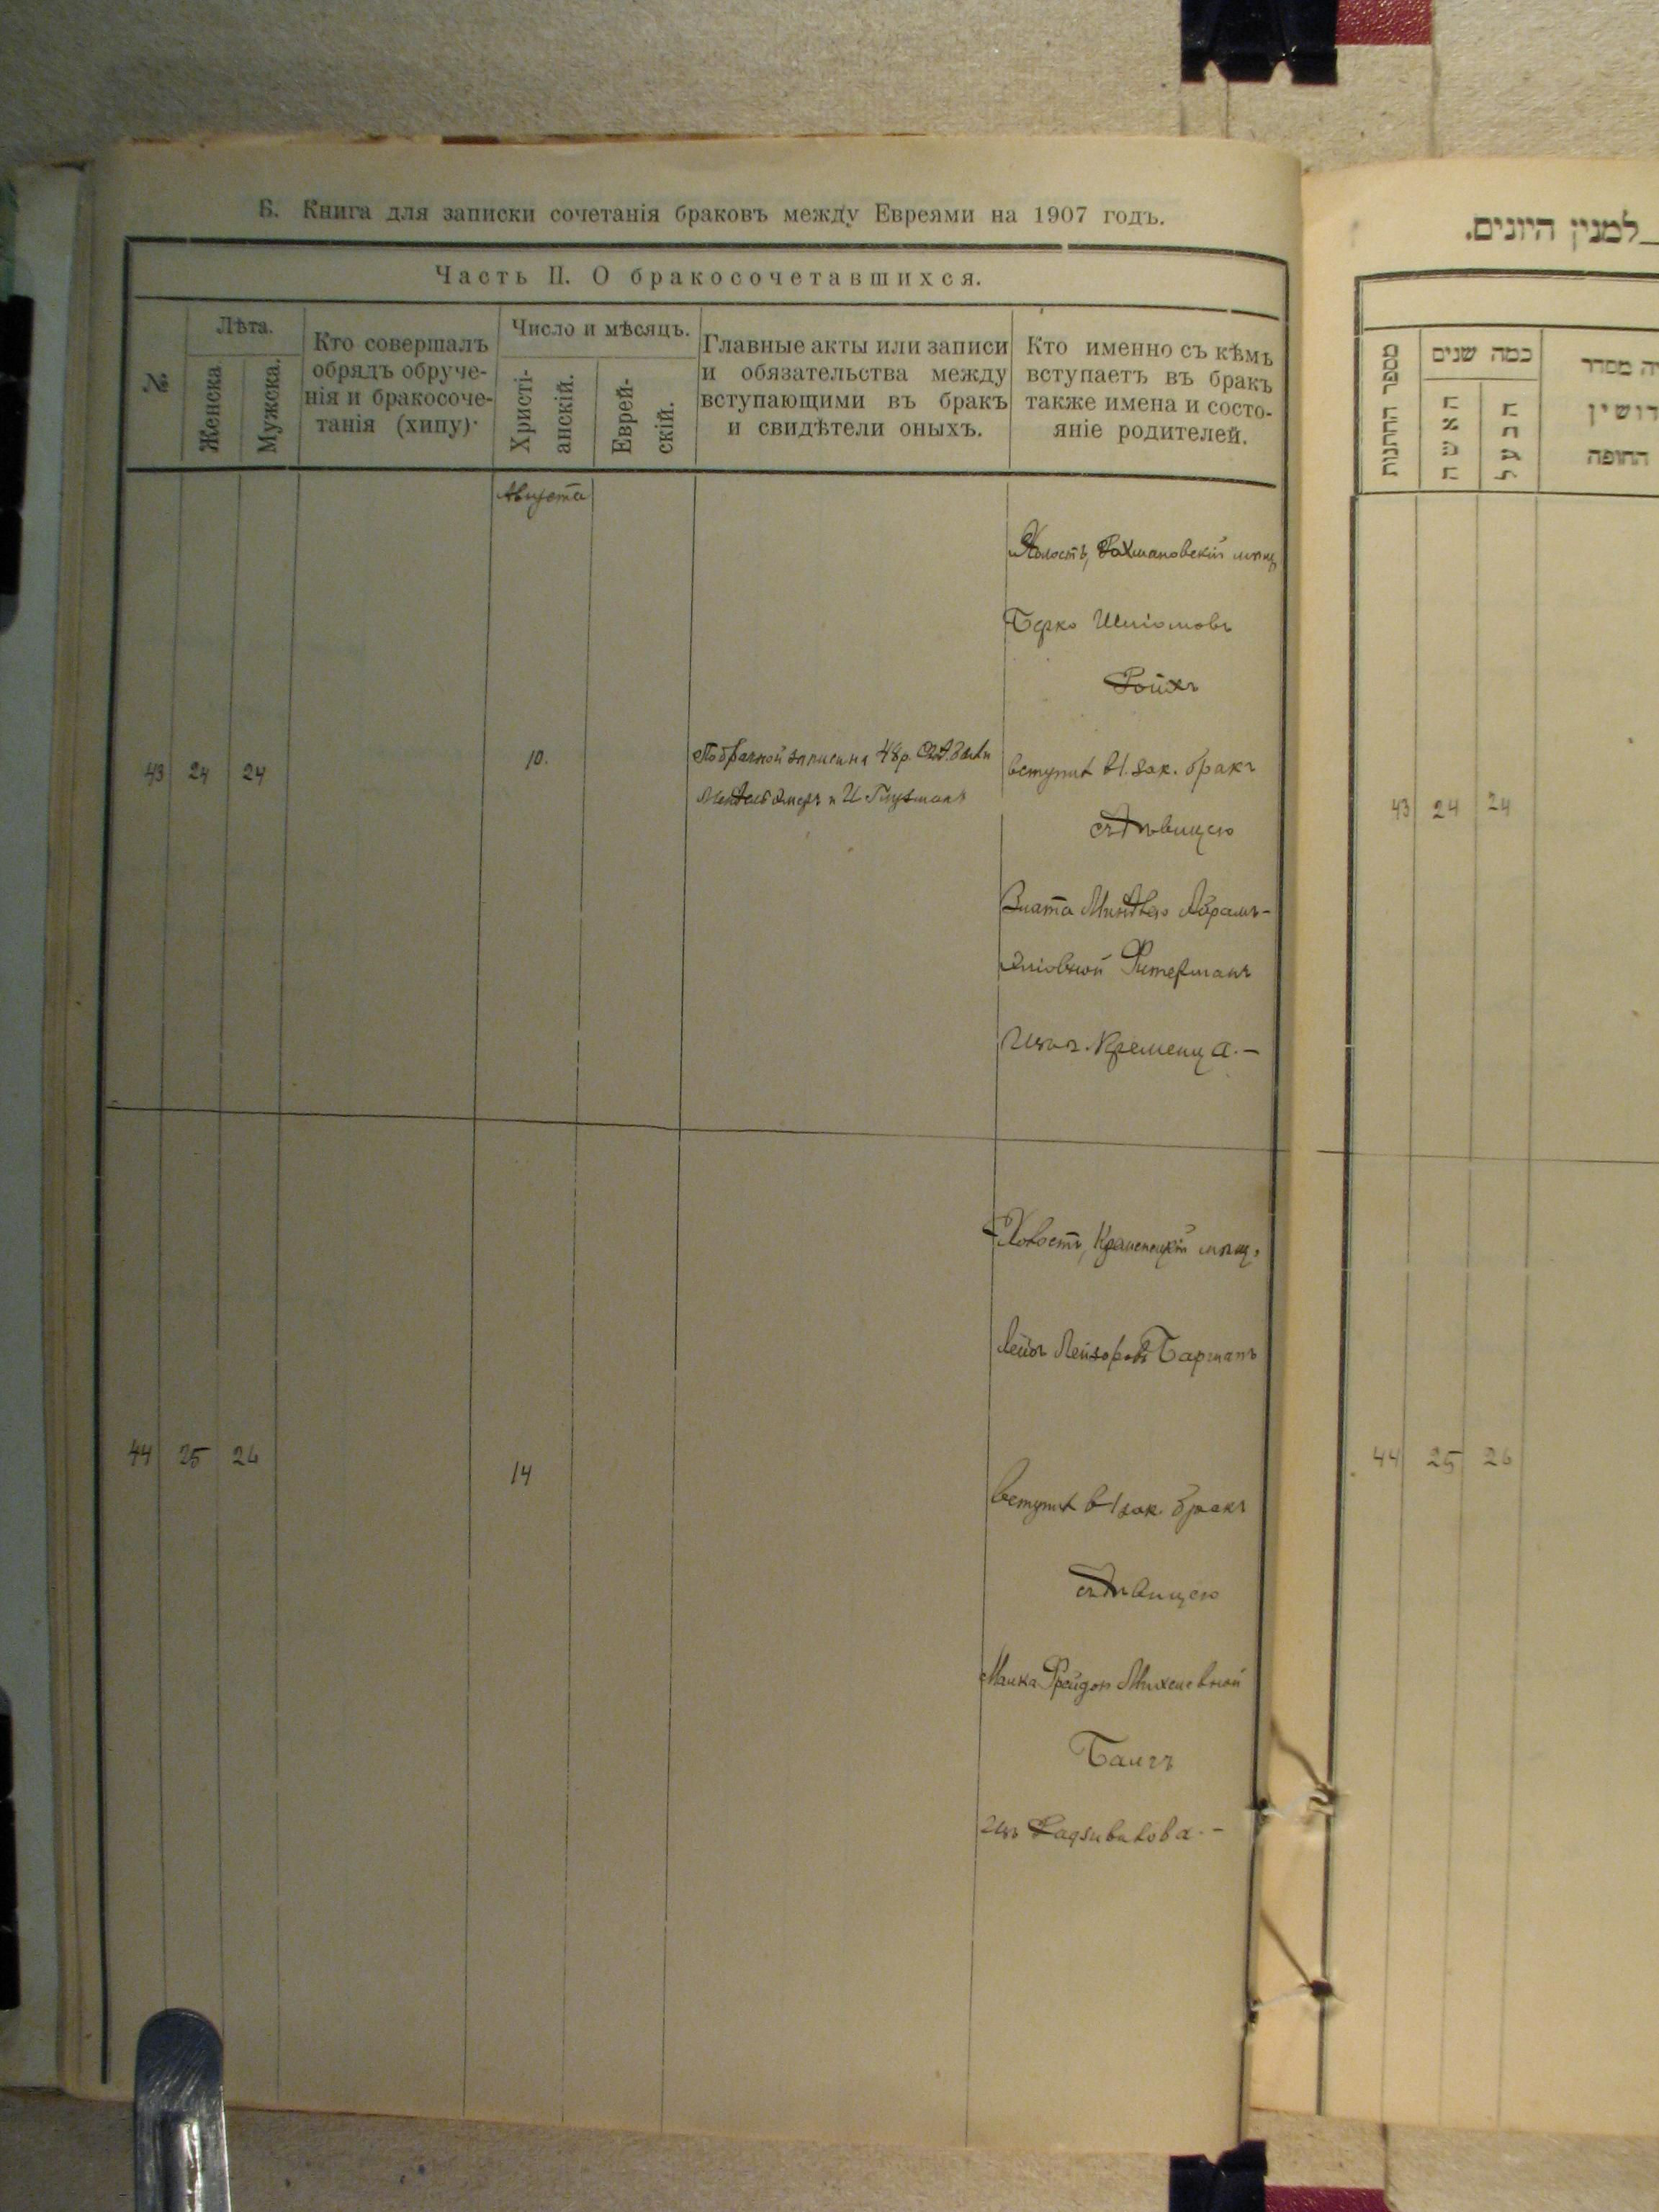 Б. Книга для записки сочетанія браковъ между Евреями на 1907 годъ.
Часть II. О бракосочетавшихся.
№
Лѣта.
Женска.
Мужска.
Кто совершалъ
обрядъ обруче-
нія и бракосоче-
танія (хипу).
Число и мѣсяцъ.
Христі-
анскій.
Еврей-
скій.
Главные акты или записи
и обязательства между
вступающими въ бракъ
и свидѣтели оныхъ.
Кто именно съ кѣмъ
вступаетъ въ бракъ
также имена и состо-
яніе родителей.
Августа
43 24 24
10.
По брачной записи на 48 р.
и
Холостъ, Рахмановскій мѣщ
Берко Шліомовъ
Ройхъ
вступил в 1. зак. бракъ
съ дѣвицею
Злата Миндлею Абрамъ-
Эліовной Фитерманъ
изъ г. Кременца.—
44 25 26
14
Холостъ, Кременецкій мѣщ.
Лейзоровъ Барманъ
вступил в 1 зак. бракъ
съ дѣвицею
Фрейдою Михелевной
изъ Радзивилова.—
למנין היונים.
מספר החתנות
כמה שנים
האשה
הבעל
היה מסדר
החופה
43 24 24
44 25 26